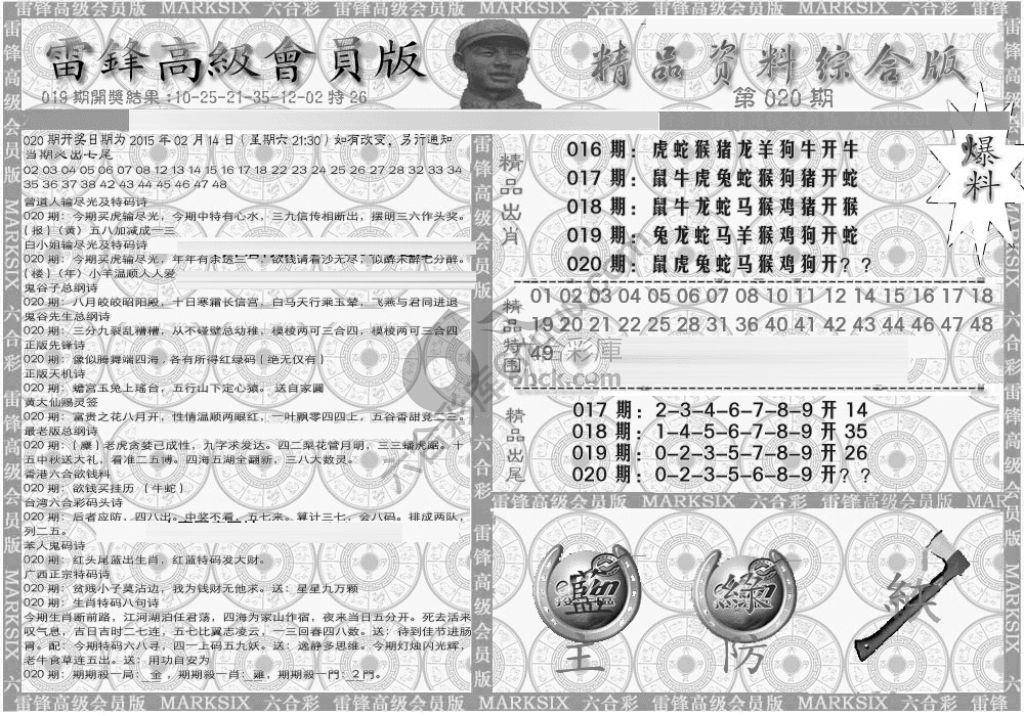 雷锋高级会员版 MARKSIX 六合彩 雷锋高级会员版 MARKSIX 六合彩 雷锋高级会员版 MARKSIX 六合彩 雷锋
雷鋒高級會員版
精品资料综合版
019期開獎結果:10-25-21-35-12-02特26
第020期
爆料
020期开奖日期为2015年02月14日(星期六21:30)如有改变，另行通知
当期必出七尾
02 03 04 05 06 07 08 12 13 14 15 16 17 18 22 23 24 25 26 27 28 32 33 34
35 36 37 38 42 43 44 45 46 47 48
曾道人输尽光及特码诗
020期：今期买虎输尽光，今期中特有心水，三九信传相断出，摆明三六作头奖。
{报}(黄)五八加减成一三
白小姐输尽光及特码诗
020期：今期买虎输尽光，年年有余
{楼}(年)小羊温顺人人爱
鬼谷子总纲诗
020期：八月皎皎昭阳殿，十日寒霜长信宫，白马天行乘玉辇，飞燕与君同进退
鬼谷先生总纲诗
020期：三分九裂乱糟糟，从不碰壁总幼稚，模棱两可三合四，模棱两可三合四
正版先锋诗
020期：像似腾舞端四海，各有所得红绿码{绝无仅有}
正版天机诗
020期：蟾宫玉兔上瑶台，五行山下定心猿。送自家圆
黄大仙赐灵签
020期：富贵之花八月开，性情温顺两眼红，一叶飘零四四上，五谷香甜竞二三。
最老版总纲诗
020期：{廮}老虎贪婪已成性，九字求发达。四二梨花管月明，三三蟠虎踞。十
五中秋送大礼，看准二五博。四海五湖全翻新，三八大数灵。
香港六合欲钱料
020期：欲钱买挂历 {牛蛇}
台湾六合彩码头诗
020期：后者应防，四八出。中奖不看，五七来。算计三七，会八码。排成两队，
列二五。
本人鬼码诗
020期：红头尾蓝出生肖，红蓝特码发大财。
广西正宗特码诗
020期：贫贱小子莫沾边，我为钱财无他求。送：星星九万颗
020期：生肖特码八句诗
今期生肖断前路，江河湖泊任君荡，四海为家山作宿，夜来当日五分开。死去活来
叹气息，吉日吉时二七连，五七比翼志凌云，一三回春四八数。送：待到佳节进肠
胃。配：今期特码六八寻，四一上码五九妖。送：逸静多思维。今期灯烛闪光辉，
老牛食草连五出。送：用功自安为
020期：期期殺一局：金，期期殺一肖：雞，期期殺一門：2門。
精品出肖
016期：虎蛇猴猪龙羊狗牛开牛
017期：鼠牛虎兔蛇猴狗猪开蛇
018期：鼠牛龙蛇马猴鸡猪开猴
019期：兔龙蛇马羊猴鸡狗开蛇
020期：鼠虎兔蛇马猴鸡狗开？？
精品特围
01 02 03 04 05 06 07 08 10 11 12 14 15 16 17 18
19 20 21 22 25 28 31 36 40 41 42 43 44 46 47 48
49
彩庫
6hck.com
精品出尾
017期：2-3-4-6-7-8-9开14
018期：1-4-5-6-7-8-9开35
019期：0-2-3-4-6-8-9开26
020期：0-2-3-5-6-8-9开？？
雷锋高级会员版 MARKSIX 六合彩 雷锋高级会员版
藍
主
綠
防
殺
雷锋高级会员版 MARKSIX 六合彩 雷锋高级会员版 MARKSIX 六合彩 雷锋高级会员版 MARKSIX 六合彩 雷锋